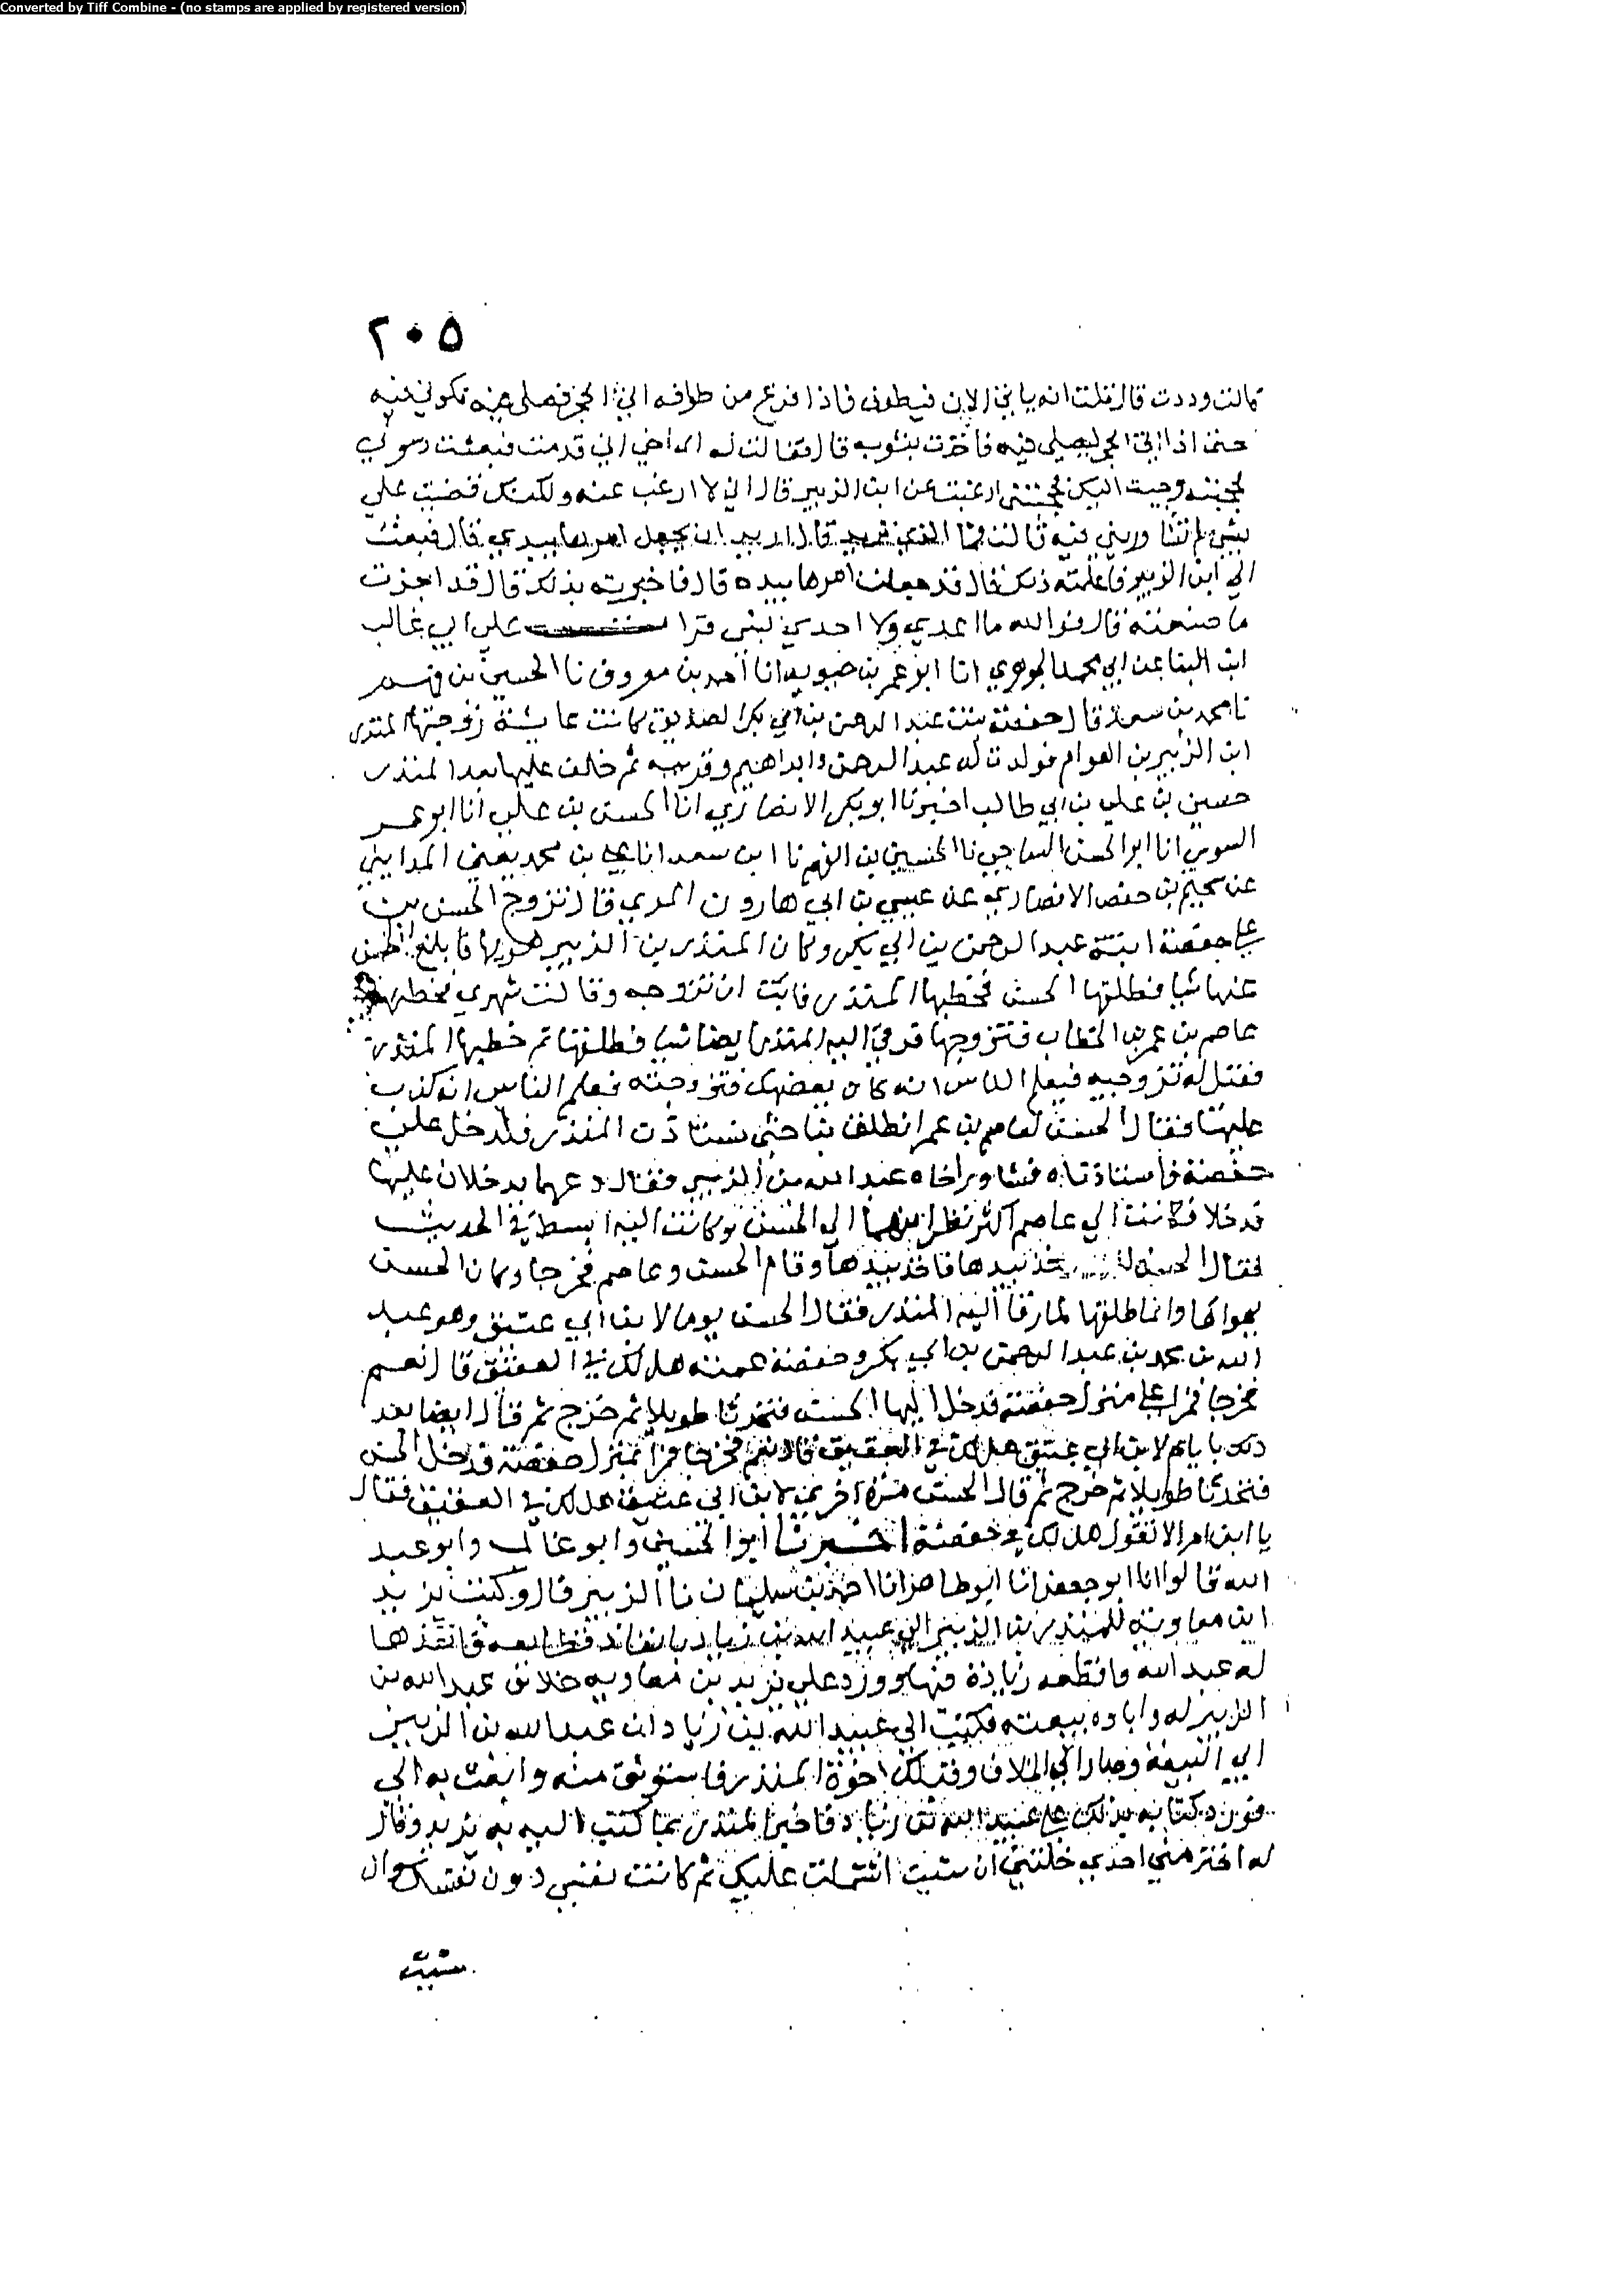 Converted by Tiff Combine - (no stamps are applied by registered version)
٢٠٥
قالت وددت قال فقلت انه ياتي الان فيطوف فاذا فرغ من طوافه اتي الحجر فصلي فيه تكوني فيه
حتي اذا اتي الحجر ليصلي فيه فاخذت بثوبه قال فقالت له اي اخي اني قدمت فبعثت رسولي
فحجبته وجيت اليك فحجبتني ارغبت عن ابن الزبير قال اني لا ارغب عنه ولكنك قضيت علي
بشي لم تشاوريني فيه قالت فما الذي تريد قال اريد ان يجعل امرها بيدي قال فبعثت
الي ابن الزبير فاعلمته ذلك قال قد جعلت امرها بيده قال فاخبرته بذلك قال قد اجزت
ما صنعته قال فوالله ما اعدي ولا احدي لشي قرا علي ابي غالب
ابن البنا عن ابي محمد الجوهري انا ابو عمر بن حيويه انا احمد بن معروف نا الحسين بن فهم
نا محمد بن سعد قال حفصة بنت عبد الرحمن بن ابي بكر الصديق كانت عايشة زوجتها المنذر
ابن الزبير بن العوام فولدت له عبد الرحمن وابراهيم وقريبه ثم خلف عليها بعد المنذر
حسين بن علي بن ابي طالب اخبرنا ابو بكر الانصاري انا الحسن بن علي انا ابو عمر
السوسي انا ابو الحسن الساجي نا الحسين بن الفهم نا ابن سعد انا علي بن محمد يعني المدايني
عن سحيم بن حفص الانصاري عن عيسي بن ابي هارون المدني قال تزوج الحسن بن
علي حفصة ابنة عبد الرحمن بن ابي بكر وكان المنذر بن الزبير هويها فابلغ الحسن
عنها شيا فطلقها الحسن فخطبها المنذر فابت ان تزوجه وقالت شهرني فخطبها
عاصم بن عمر بن الخطاب فتزوجها فرقي اليه المنذر ايضا شيا فطلقها ثم خطبها المنذر
فقيل له تزوجيه فيعلم الناس انه كان يعضهك فتزوجته فعلم الناس انه كذب
عليها فقال الحسن لعاصم بن عمر انطلق بنا حتي نستاذن المنذر فندخل علي
حفصة فاستاذناه فشاور اخاه عبد الله بن الزبير فقال دعهما يدخلان عليها
فدخلا فكانت الي عاصم اكثر نظرا منها الي الحسن وكانت اليه ابسط في الحديث
فقال الحسن خذ بيدها فاخذ بيدها وقام الحسن وعاصم فخرجا وكان الحسن
يهواها وانما طلقها لما رقا اليه المنذر فقال الحسن يوما لابن ابي عتيق وهو عبد
الله بن محمد بن عبد الرحمن بن ابي بكر وحفصة عمته هل لك في العقيق قال نعم
فخرجا فمرا علي منزل حفصة فدخل اليها الحسن فتحدثا طويلا ثم خرج ثم قال ايضا بعد
ذلك بايام لابن ابي عتيق هل لك في العقيق قال نعم فخرجا فمرا بمنزل حفصة فدخل الحسن
فتحدثا طويلا ثم خرج ثم قال الحسن مرة اخري لابن ابي عتيق هل لك في العقيق فقال
يا ابن ام الا تقول هل لك في حفصة اخبرنا ابو الحسين وابو غالب وابو عبد
الله قالوا انا ابو جعفر انا ابو طاهر انا احمد بن سليمان نا الزبير قال وكتب يزيد
ابن معاوية للمنذر بن الزبير الي عبيد الله بن زياد بانفاذ قطايعه فانفذها
له عبد الله واقطعه زيادة فيها وورد علي يزيد بن معاويه خلاف عبد الله بن
الزبير له واباوه بيعته فكتب الي عبيد الله بن زياد ان عبد الله بن الزبير
ابي البيعة وصار الي الخلاف وقبلك اخوة المنذر فاستوثق منه وابعث به الي
فورد كتابه بذلك علي عبيد الله بن زياد فاخبر المنذر بما كتب اليه به يزيد وقال
له اختر مني احدي خلتين ان شيت اشتملت عليك ثم كانت نفسي دون نفسك وان
شيت